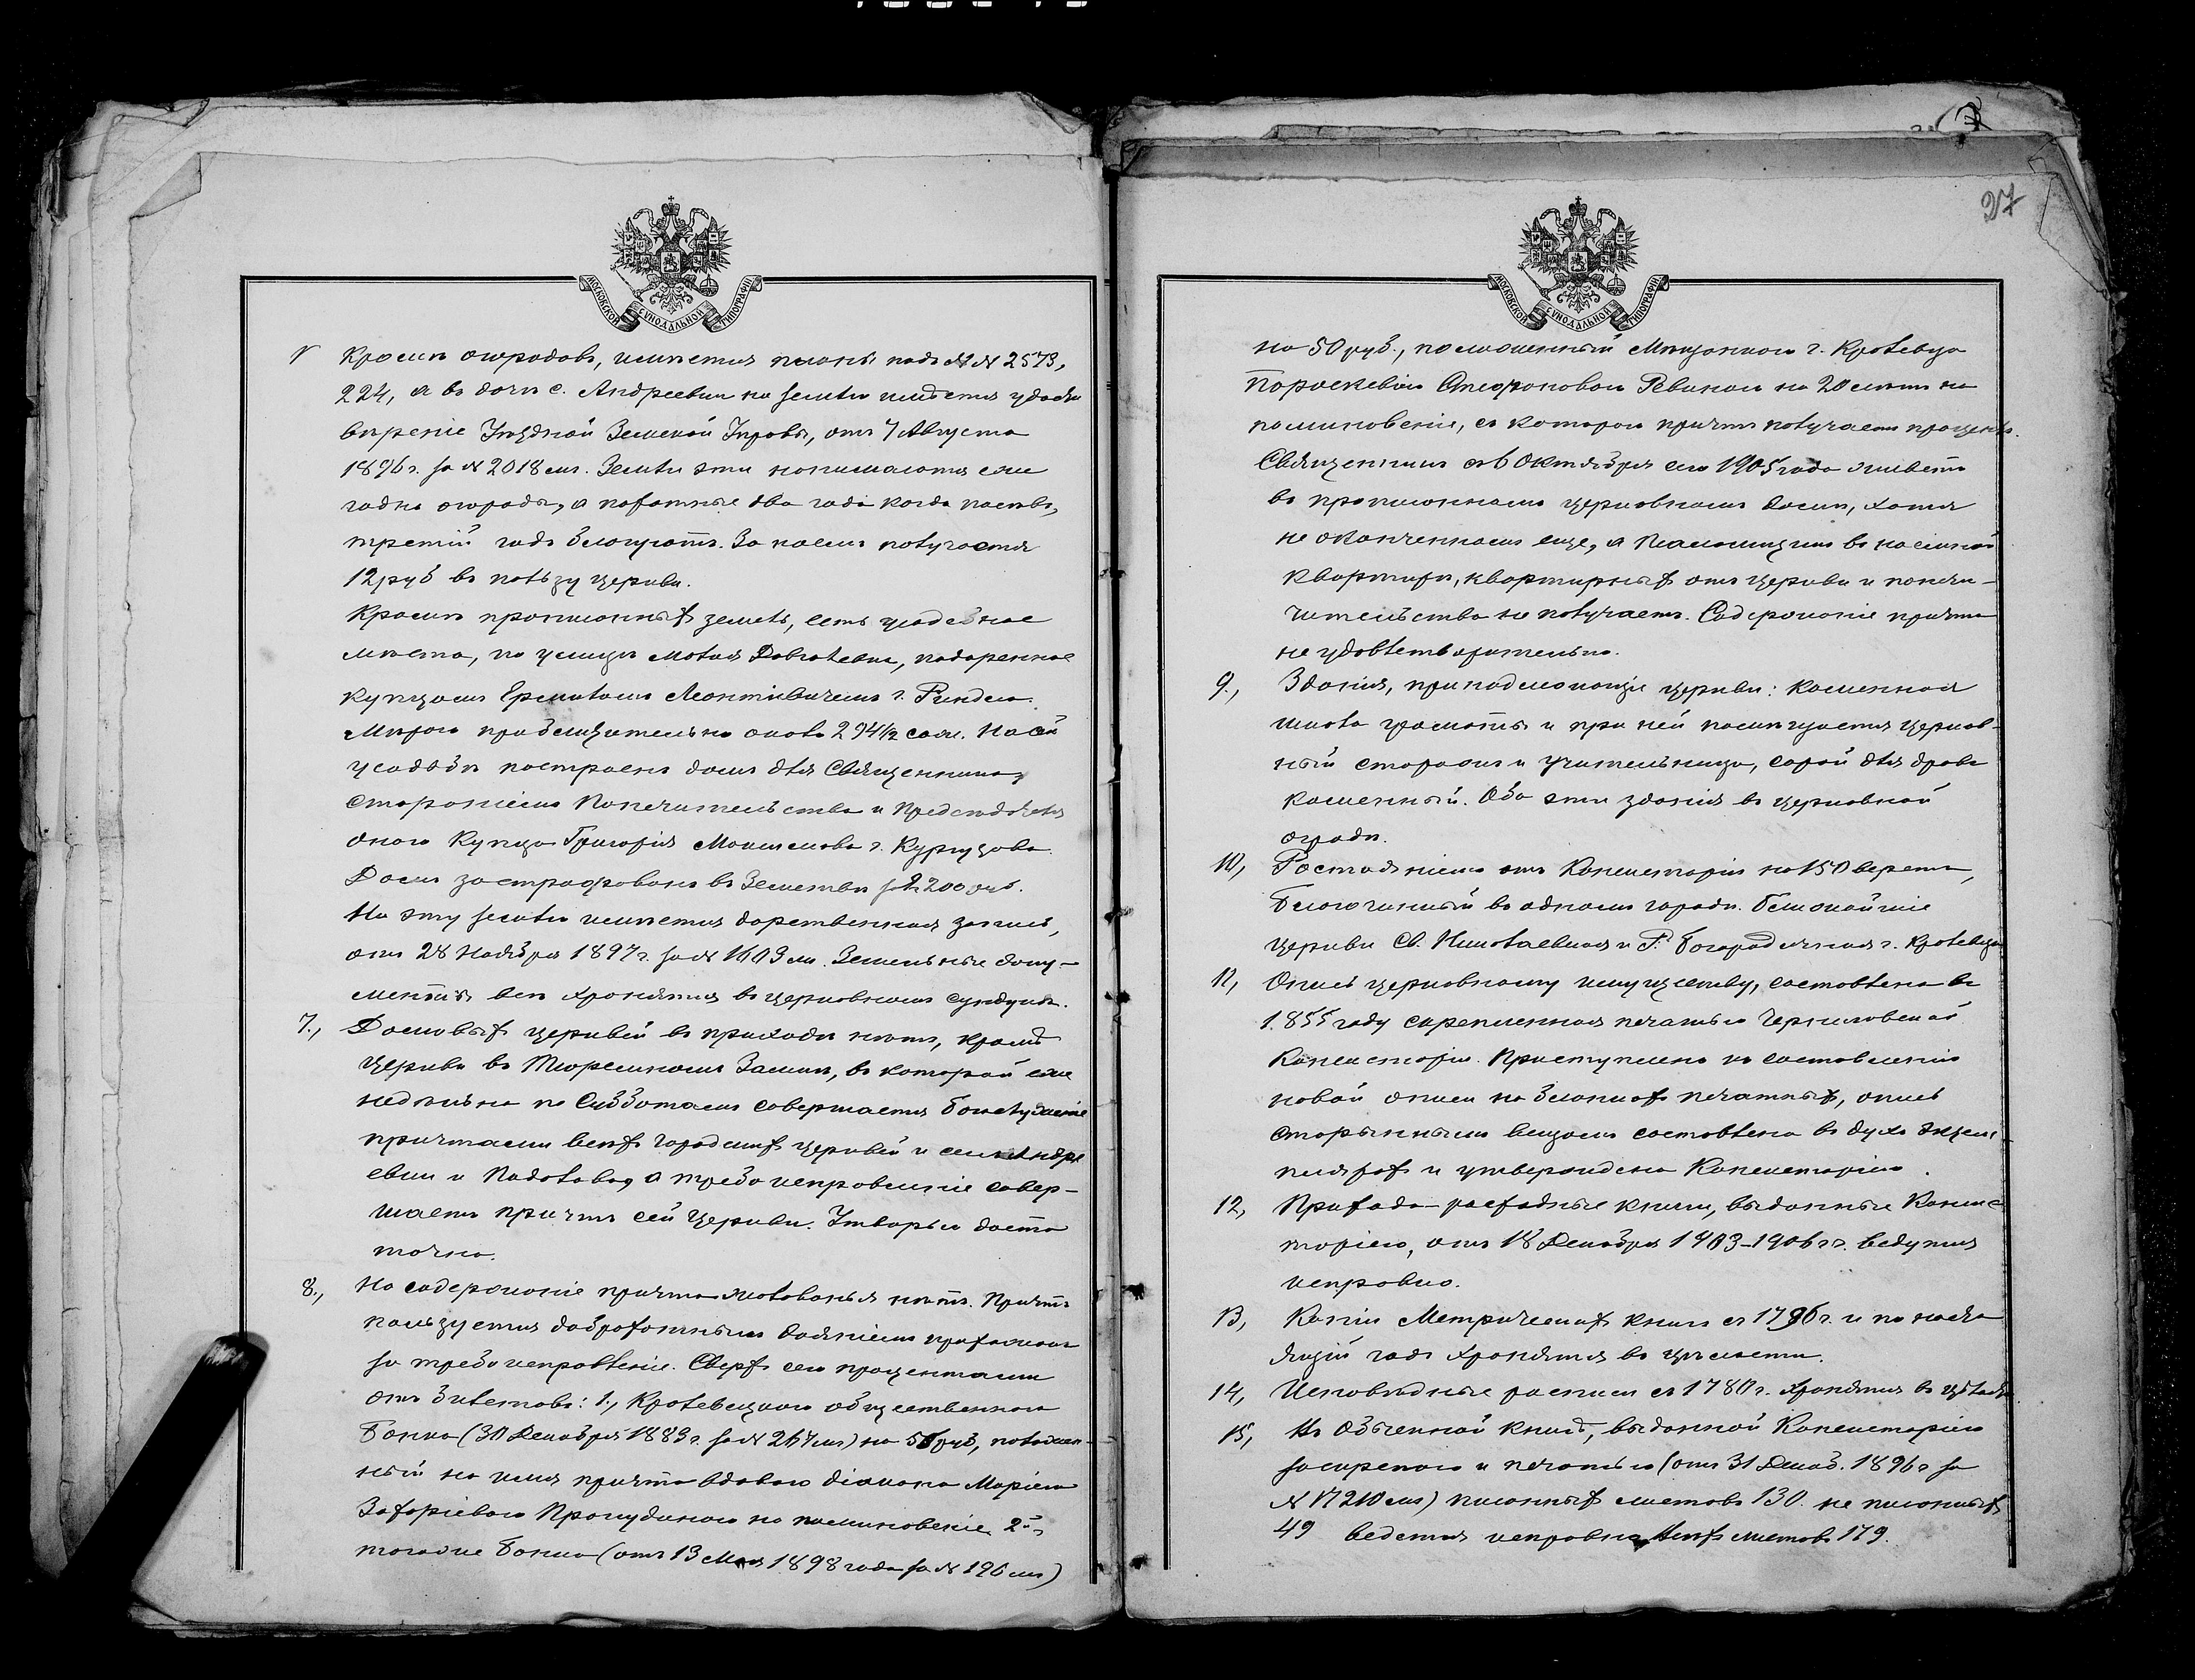 МОСКОВСКОЙ СѴНОДАЛЬНОЙ ТИПОГРАФІИ
Кромѣ огородовъ, имѣется планы подъ №№ 2573,
224, а въ дачѣ с. Андреевки на землю имѣется удосто
вѣреніе Уѣздной Земской Управы, отъ 7 Августа
1896 г. за № 2018 мъ. Земли эти нанимаются еже
годно огороды, а полотные два года когда посѣвъ,
третій годъ Толоку. За наемъ получается
12 руб въ пользу церкви.
Кромѣ прописанныхъ земель, есть усадебное
мѣсто, по улицѣ Малая, подаренное
купцомъ Ермилomъ Леонтіевичемъ г. Риндею.
Мѣрою приблизительно около 294 1/2 саж. На сей
усадьбѣ построенъ домъ для Священника,
стараніемъ Попечительства и Предсѣдателя
онаго Купца Григорія Максимова г. Кургузова.
Домъ застрахованъ въ Земствѣ за 200 руб.
На эту землю имѣется дарственная запись,
отъ 28 Ноября 1897 г. за № 1603 мъ. Земельные доку-
менты всѣ хранятся въ церковномъ сундукѣ.
7., Домовыхъ церквей въ приходѣ нѣтъ, кромѣ
Церкви въ Тюремномъ Замкѣ, въ которой еже
недѣльно по Субботамъ совершается Богослуженіе
причтами всѣхъ городскихъ церквей и селъ Андре
евки и Подолова, а требоисправленіе совер-
шаетъ причтъ сей Церкви. Утварью доста
точна.
8., На содержаніе причта жалованья нѣтъ. Причтъ
пользуется доброхотнымъ даяніемъ прихожанъ
за требоисправленіе. Сверхъ сего процентами
отъ билетовъ: 1., Кролевецкаго общественнаго
Банка (30 Декабря 1883 г. за № 267 мъ) на 50 руб, положен-
ный на имя причта вдовою діакона Маріею
Захаріевою на поминовеніе. 2й,
тогоже Банка (отъ 13 Мая 1898 года за № 190 мъ)
27
МОСКОВСКОЙ СѴНОДАЛЬНОЙ ТИПОГРАФІИ
на 50 руб., положенный Мѣщанкою г. Кролевца
Параскевіею Стефановою на поминовеніе, съ котораго причтъ получаетъ проценты.
Священникъ съ 6 Октября сего 1905 года живетъ
въ прописанномъ церковномъ домѣ, хотя
не оконченномъ еще, а Псаломщикъ въ наемной
квартирѣ, квартирныхъ отъ Церкви и попечи-
тельства не получаетъ. Содержаніе причта
не удовлетворительно.
9., Зданія, принадлежащія церкви: каменная
школа грамоты и при ней помѣщается церков-
ный сторожъ и учительница, сарай для дровъ
каменный. Оба эти зданія въ церковной
оградѣ.
10, Разстояніемъ отъ Консисторіи на 150 верстъ,
Благочинный въ одномъ городѣ. Ближайшіе
Церкви Св. Николаевская и Р. Богородичная г. Кролевца
11, Опись церковному имуществу, составлена въ
1855 году скрепленная печатью Черниговской
Консисторіи. Приступлено къ составленію
новой описи на бланкахъ печатныхъ, опись
старыннымъ вещамъ составлена въ духъ экзем-
плярахъ и утверждена Консисторіею.
12, Приходо-расходные книги, выданные Консис
торіею, отъ 18 Декабря 1903-1906 гг. ведутся
исправно.
13, Копіи Метрическихъ книгъ съ 1796 г. и по насто
ящій годъ хранятся въ цѣлости.
14, Исповѣдные росписи съ 1780 г. хранятся въ цѣлости
15, Въ Обыскной книгѣ, выданной Консисторіею
за скрепою и печатью (отъ 31 Декаб. 1896 г за
№ 17210 мъ) писанныхъ листовъ 130. не писанныхъ
49 ведется исправно, всѣхъ листовъ 179.